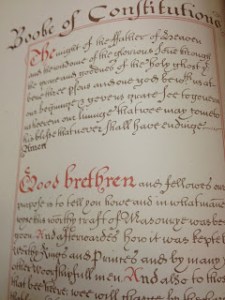 Booke of Constitutions
The might of the ffather of Heaven
and the wisdome of the glorious Sonne through
the grace and goodnes of the holy ghost y
bene three psons and one god be with us att
our beginninge & gevens grace see to govern
us here in our livinge that wee may come to
his blisse that never shall have endinge
Amen
Good brethren and fellowes our
purpose is to tell you howe and in what manner
worthy craft of Masonrye was be
gon And afterwardes how it was kepte
worthy Kings and Princes and by many
other Worshipfull men And also to those
that bee here wee will